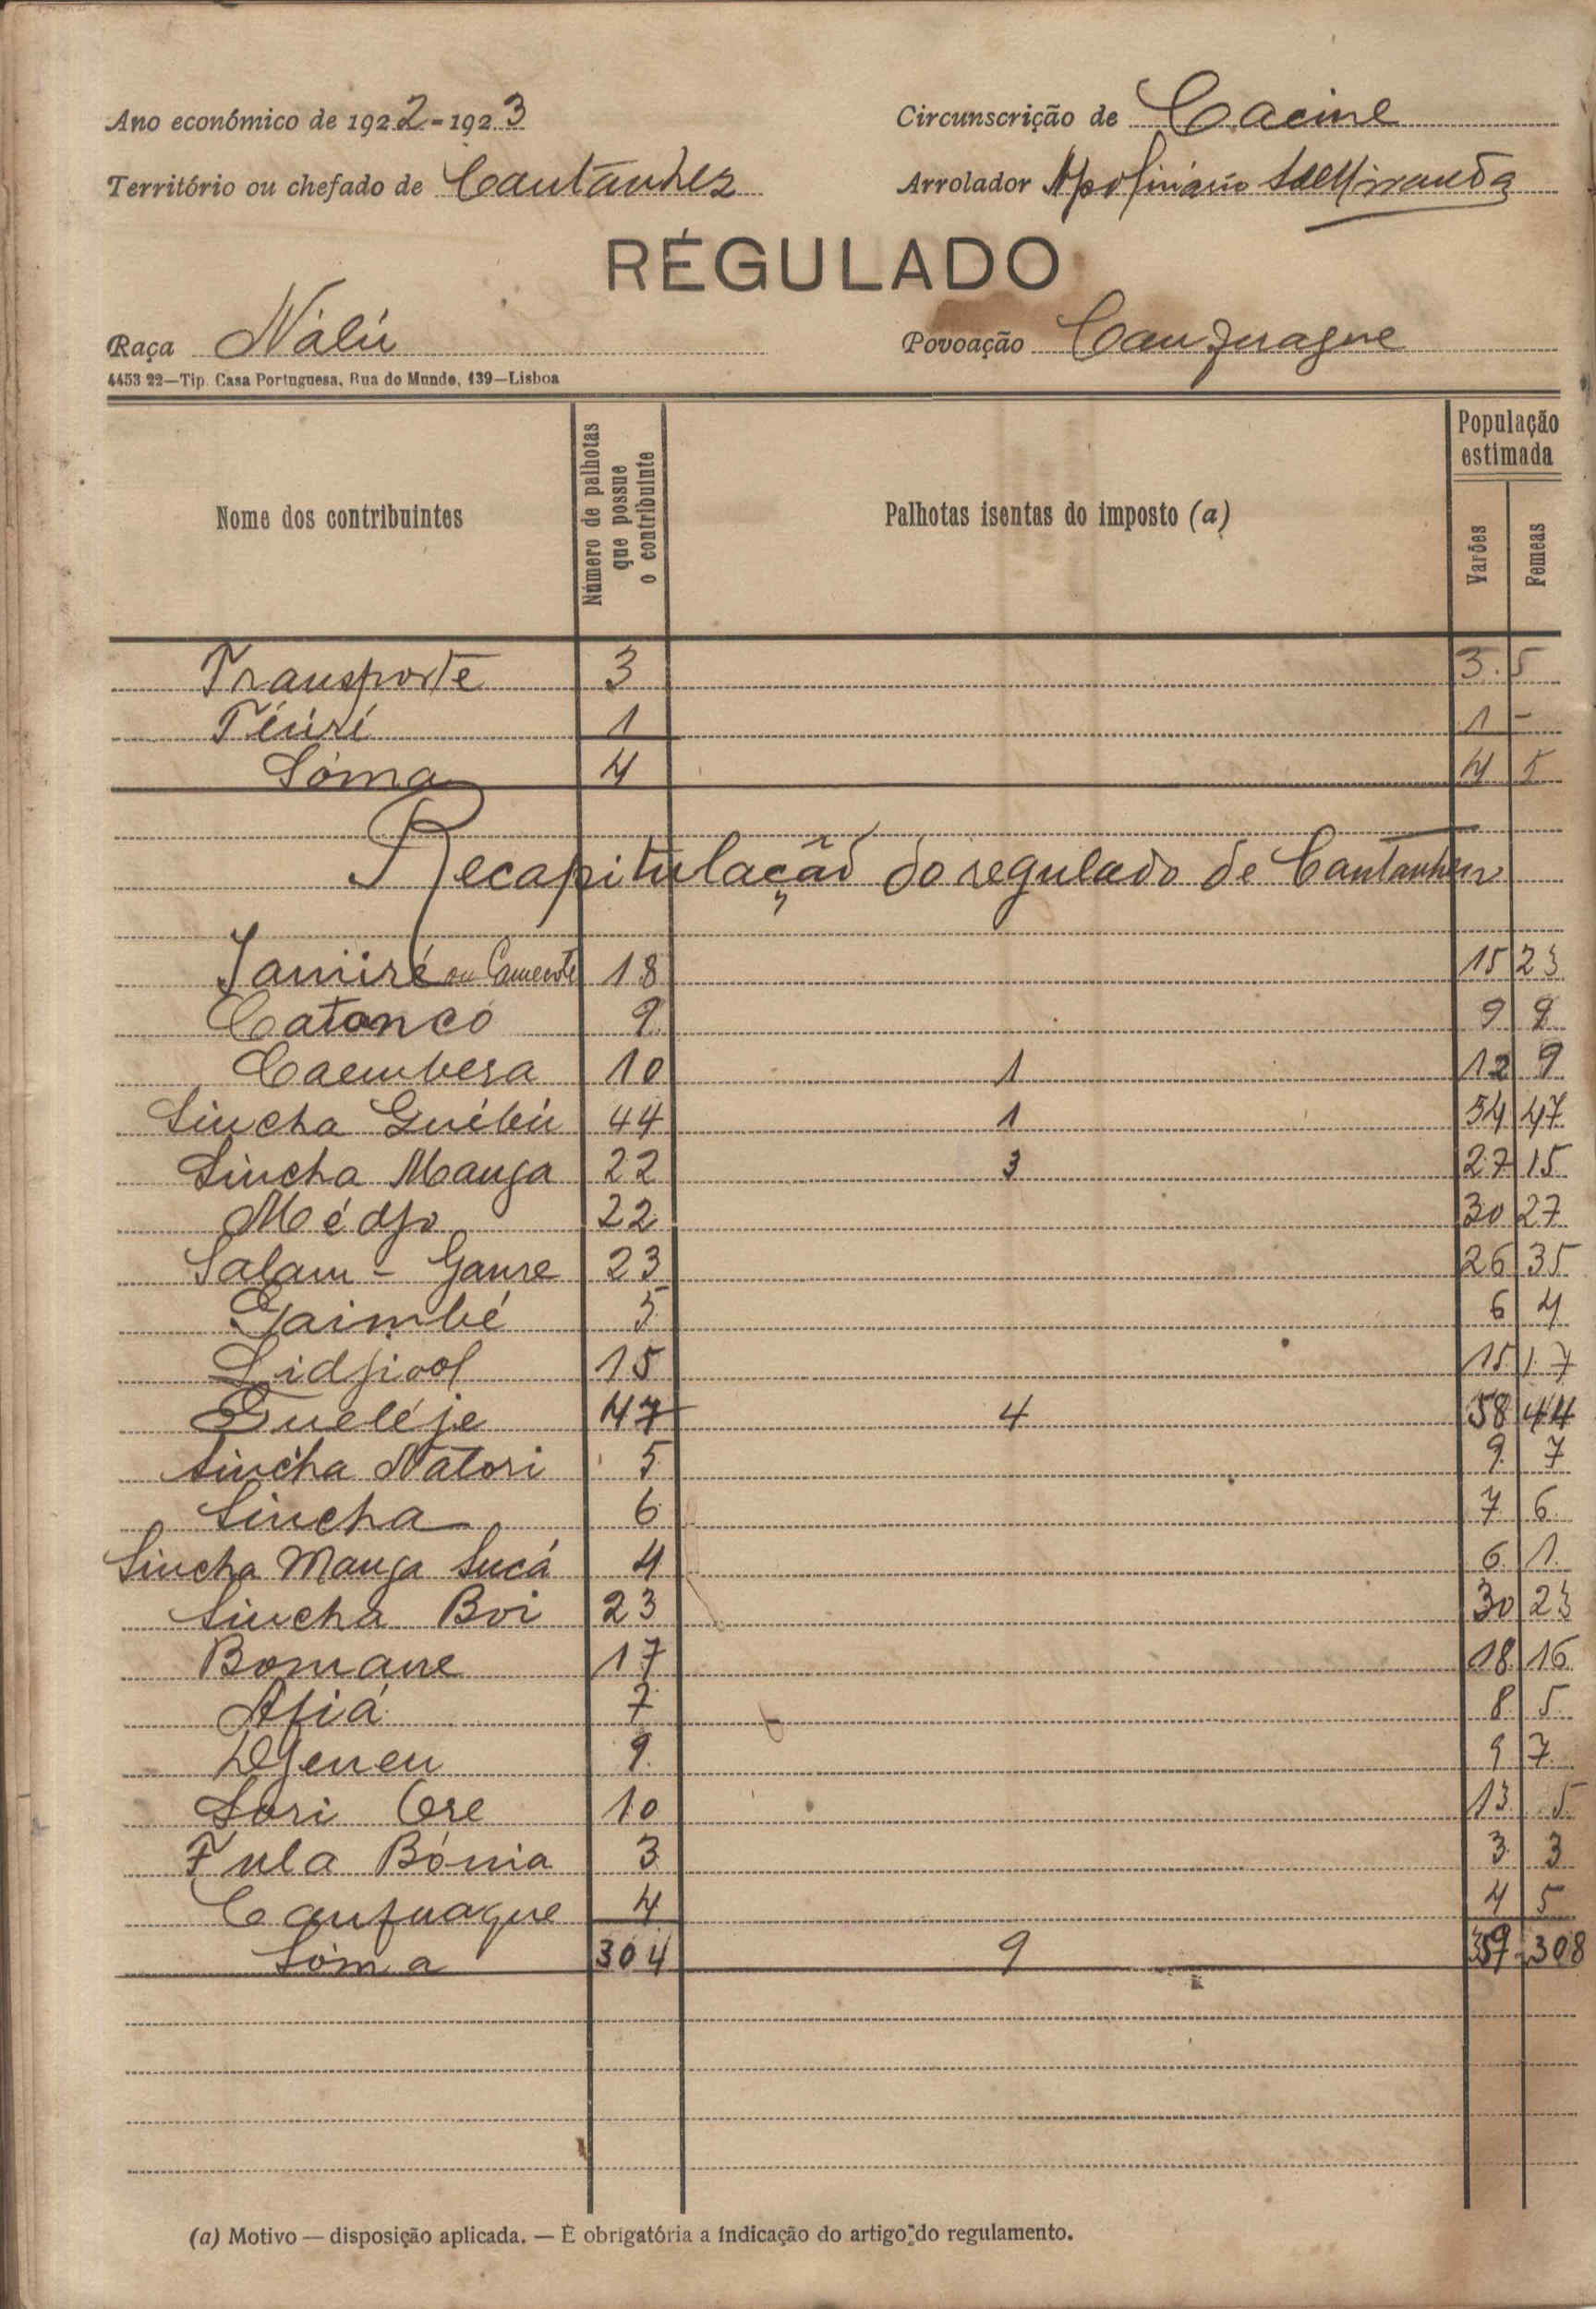 Ano económico de 1922-1923
Circunscrição de Cacine
Território ou chefado de Cantanhez
Arrolador Apolinário de Miranda
RÉGULADO
Raça Nálú
Povoação
4453 22—Tip. Casa Portuguesa, Rua do Mundo, 139—Lisboa
Nome dos contribuintes
Número de palhotas que possue o contribuinte
Palhotas isentas do imposto (a)
População estimada
Varões
Femeas
Transporte 3 3 5
1 1 -
Sóma 4 4 5
Recapitulação do regulado de Cantanhez
Jamiré ou 18 15 23
Catoncó 9 9 9
Caembera 10 1 12 9
Sincha Guibú 44 1 54 47
Sincha Manga 22 3 27 15
Médjo 22 30 27
Salam - Ganre 23 26 35
Gaimbé 5 6 4
Lidjiool 15 15 17
Gueléje 47 4 58 44
Sincha Natori 5 9 7
Sincha 6 7 6
Sincha Manga Sucá 4 6 1
Sincha Boi 23 30 23
Bomane 17 18 16
Afiá 7 8 5
Djeneu 9 9 7
Sori Ore 10 13 5
Fula Bómia 3 3 3
Canfuaque 4 4 5
Sóma 304 9 359 308
(a) Motivo — disposição aplicada. — É obrigatória a indicação do artigo do regulamento.